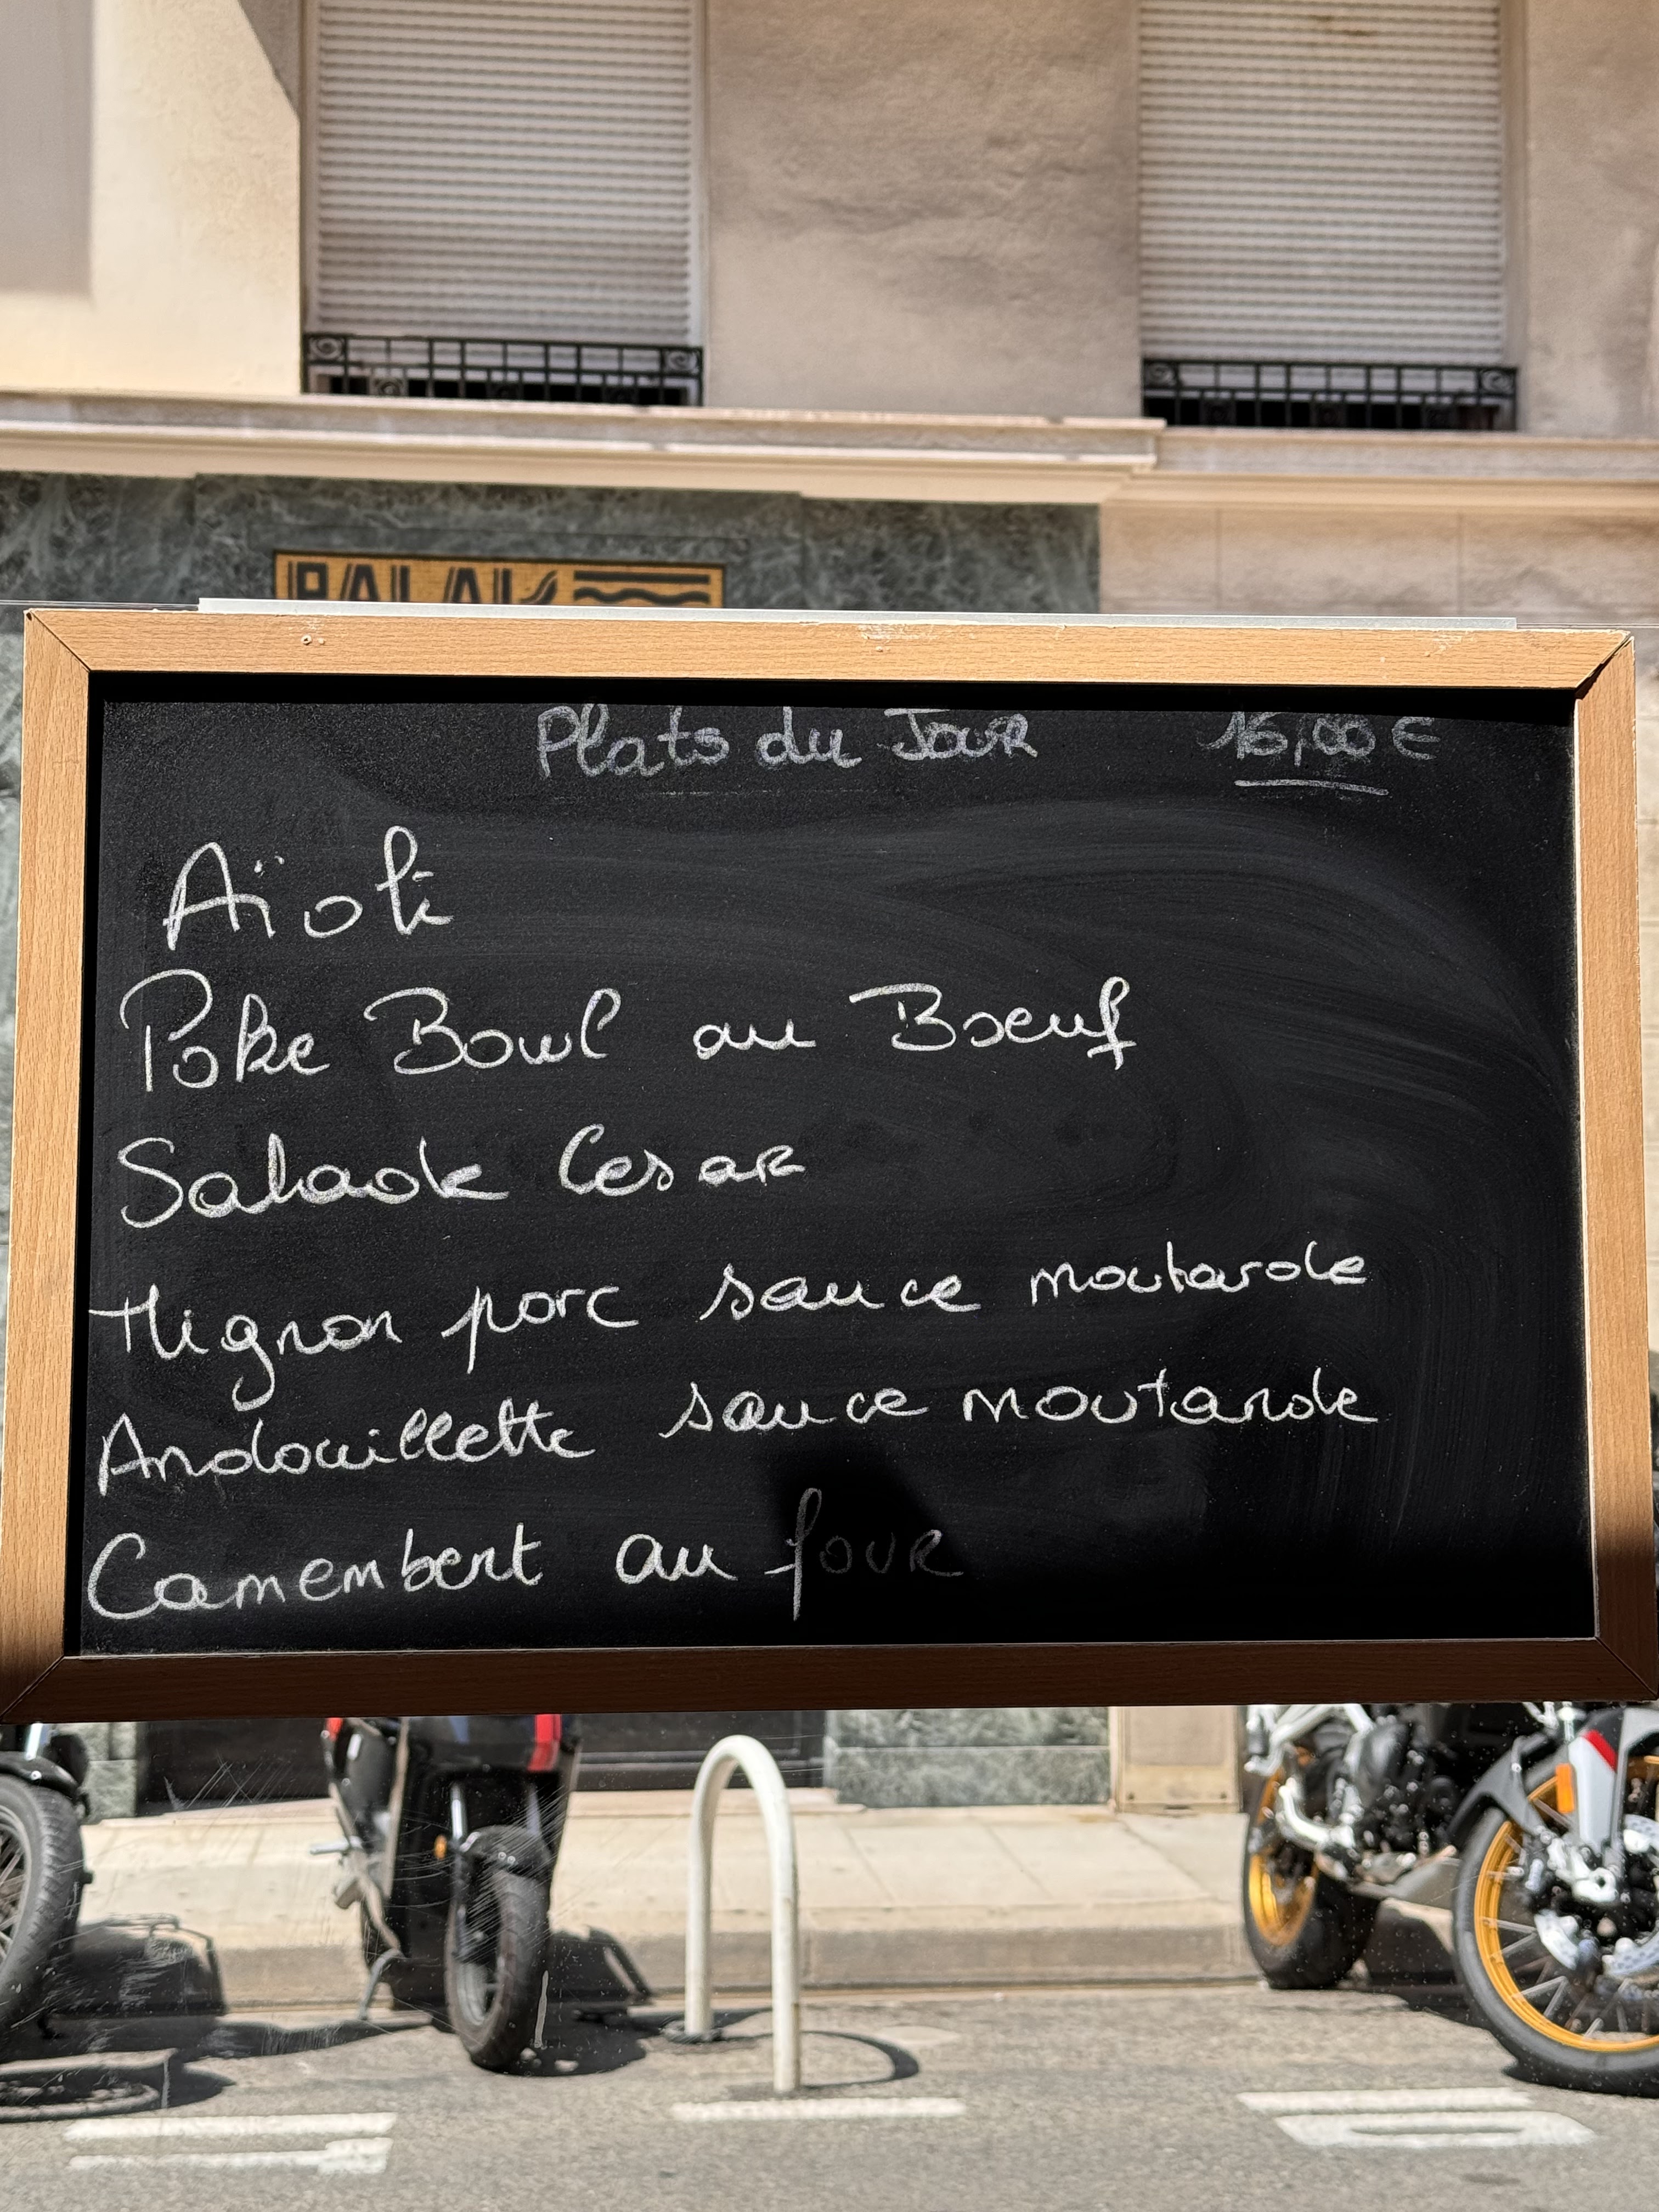 Plats du Jour 16,00 €
Aïoli
Poke Bowl au Boeuf
Salade Cesar
Mignon porc sauce moutarde
Andouillette sauce moutarde
Camembert au four